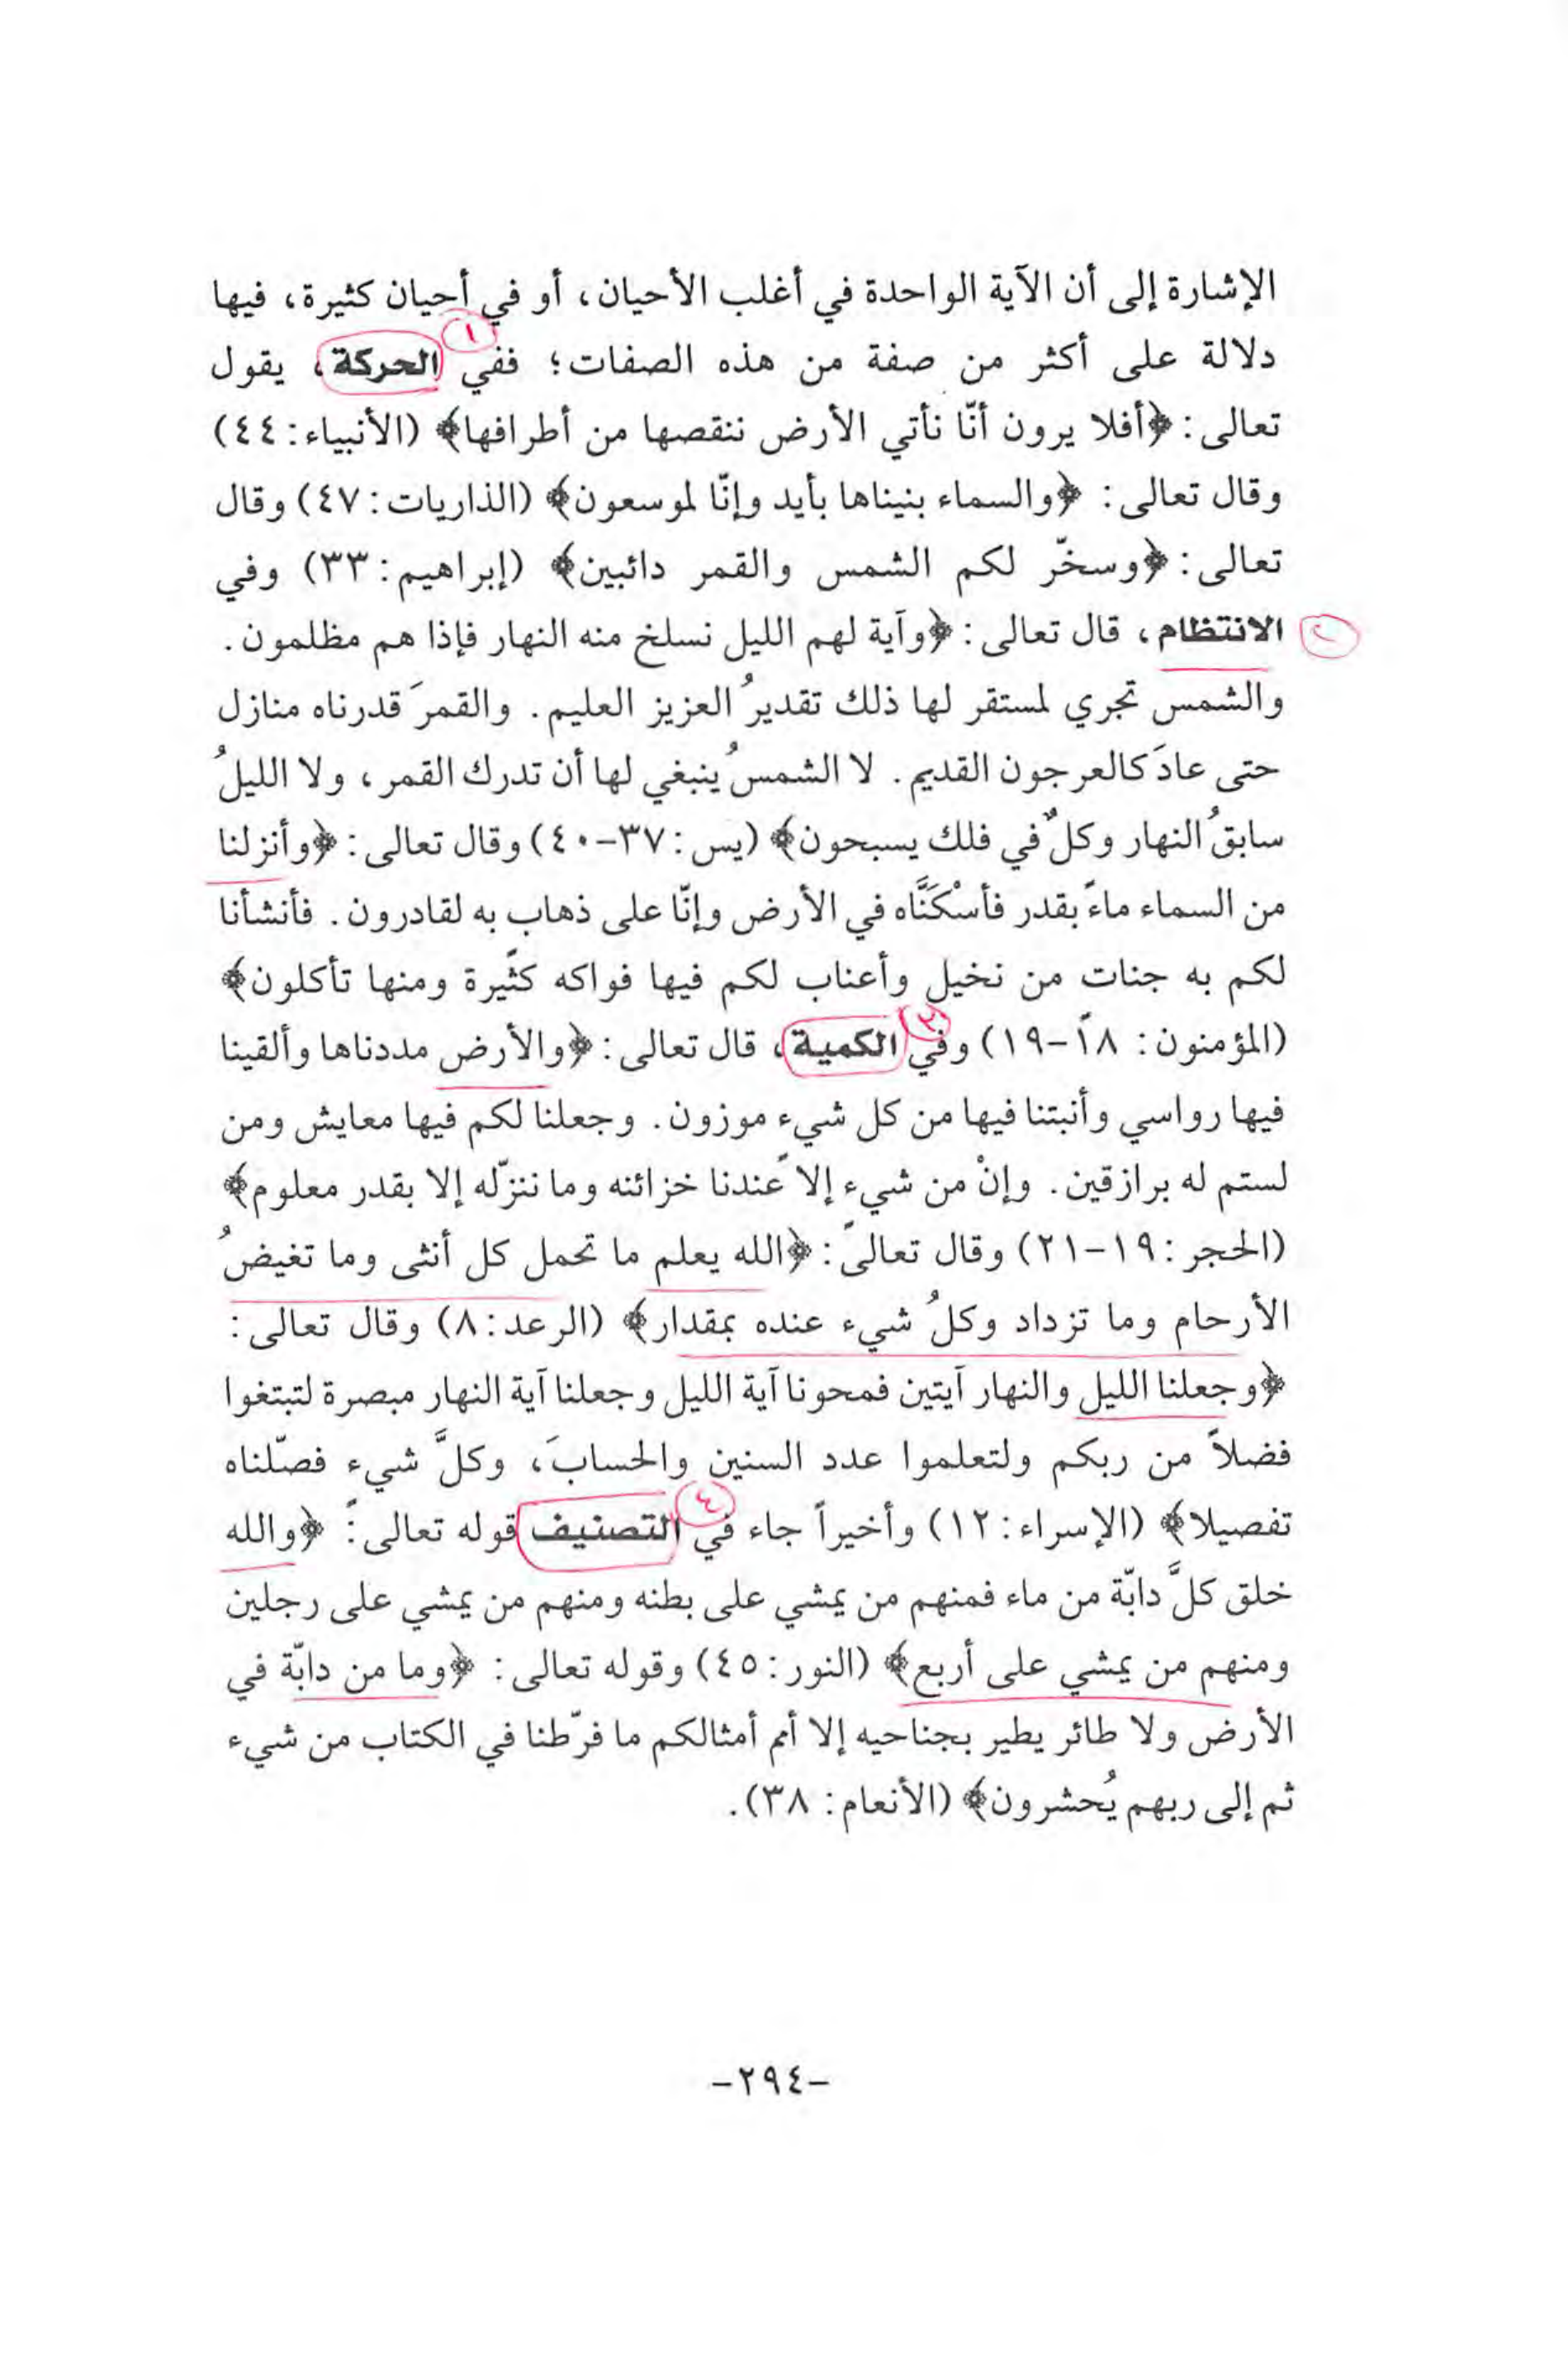 الإشارة إلى أن الآية الواحدة في أغلب الأحيان، أو في أحيان كثيرة، فيها
١
دلالة على أكثر من صفة من هذه الصفات؛ ففي الحركة، يقول
تعالى: ﴿أفلا يرون أنّا نأتي الأرض ننقصها من أطرافها﴾ (الأنبياء: ٤٤)
وقال تعالى: ﴿والسماء بنيناها بأيد وإنّا لموسعون﴾ (الذاريات: ٤٧) وقال
تعالى: ﴿وسخّر لكم الشمس والقمر دائبين﴾ (إبراهيم: ٣٣) وفي
٢ الانتظام، قال تعالى: ﴿وآية لهم الليل نسلخ منه النهار فإذا هم مظلمون.
والشمس تجري لمستقر لها ذلك تقديرُ العزيز العليم. والقمرَ قدرناه منازل
حتى عادَ كالعرجون القديم. لا الشمسُ ينبغي لها أن تدرك القمر، ولا الليلُ
سابقُ النهار وكلٌ في فلك يسبحون﴾ (يس: ٣٧-٤٠) وقال تعالى: ﴿وأنزلنا
من السماء ماءً بقدر فأسْكَنَّاه في الأرض وإنّا على ذهاب به لقادرون. فأنشأنا
لكم به جنات من نخيل وأعناب لكم فيها فواكه كثيرة ومنها تأكلون﴾
٣
(المؤمنون: ١٨-١٩) وفي الكمية، قال تعالى: ﴿والأرض مددناها وألقينا
فيها رواسي وأنبتنا فيها من كل شيء موزون. وجعلنا لكم فيها معايش ومن
لستم له برازقين. وإنْ من شيء إلا عندنا خزائنه وما ننزّله إلا بقدر معلوم﴾
(الحجر: ١٩-٢١) وقال تعالى: ﴿الله يعلم ما تحمل كل أنثى وما تغيضُ
الأرحام وما تزداد وكلُ شيء عنده بمقدار﴾ (الرعد: ٨) وقال تعالى:
﴿وجعلنا الليل والنهار آيتين فمحونا آية الليل وجعلنا آية النهار مبصرة لتبتغوا
فضلاً من ربكم ولتعلموا عدد السنين والحسابَ، وكلَّ شيء فصّلناه
٤
تفصيلا﴾ (الإسراء: ١٢) وأخيراً جاء في التصنيف قوله تعالى: ﴿والله
خلق كلَّ دابّة من ماء فمنهم من يمشي على بطنه ومنهم من يمشي على رجلين
ومنهم من يمشي على أربع﴾ (النور: ٤٥) وقوله تعالى: ﴿وما من دابّة في
الأرض ولا طائر يطير بجناحيه إلا أمم أمثالكم ما فرّطنا في الكتاب من شيء
ثم إلى ربهم يُحشرون﴾ (الأنعام: ٣٨).
-٢٩٤-